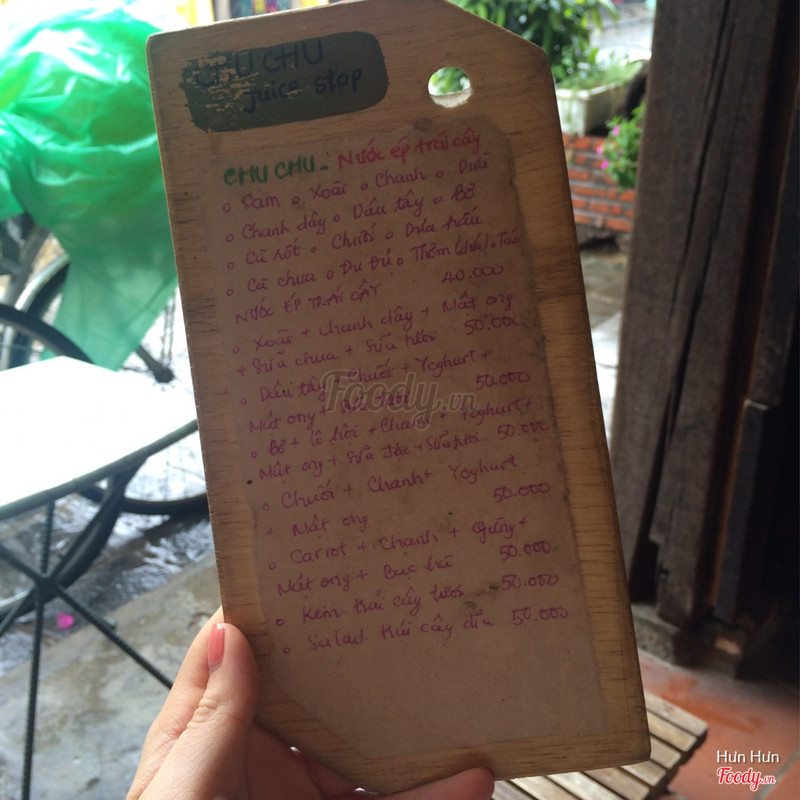 CHU CHU
juice stop
CHU CHU - Nước ép trái cây
Cam Xoài Chanh Dưa
Chanh dây Dâu tây Bơ
Cà rốt Chuối Dưa hấu
Cà chua Đu đủ Thơm (dứa) Táo
NƯỚC ÉP TRÁI CÂY 40.000
Xoài + Chanh dây + Mật ong
+ Sữa chua + Sữa tươi 50.000
Dâu tây + Chuối + Yoghurt +
Mật ong + Sữa tươi 50.000
Bơ + lô hội + Chanh + Yoghurt +
Mật ong + Sữa đặc + Sữa tươi 50.000
Chuối + Chanh + Yoghurt
+ Mật ong 50.000
Carrot + Chanh + Gừng +
Mật ong + Bạc hà 50.000
Kem trái cây tươi 50.000
Salad trái cây dĩa 50.000
Foody.vn
Hưn Hưn
Foody.vn